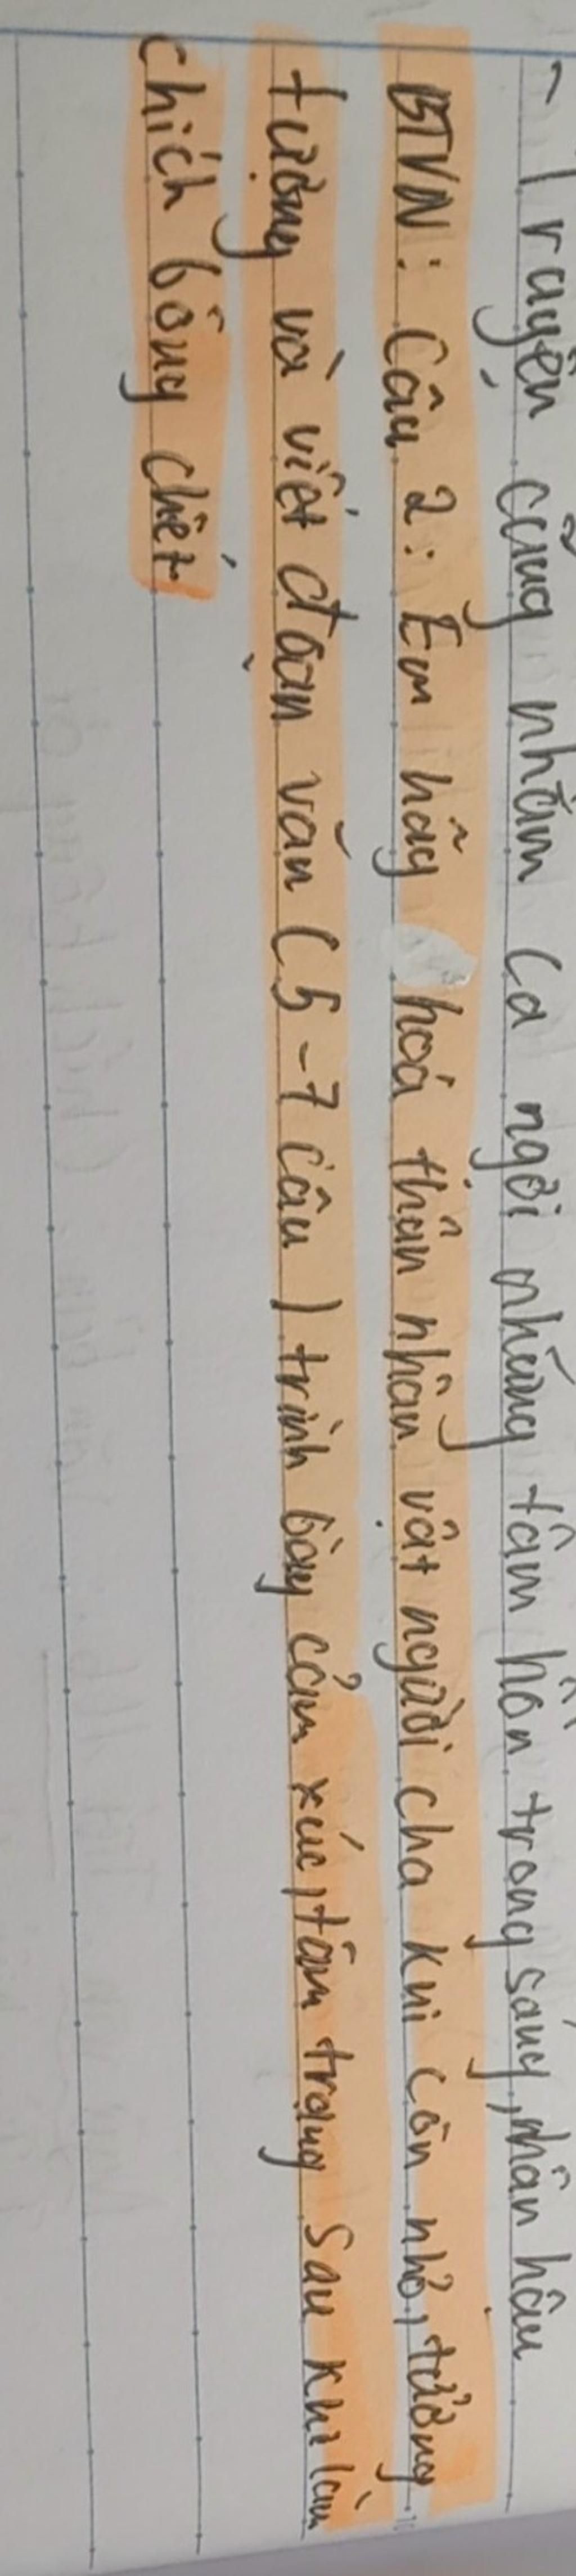 - Truyện cũng nhằm ca ngợi những tâm hồn trong sáng, nhân hậu
BTVN: Câu 2: Em hãy hoá thân nhân vật người cha khi còn nhỏ, tưởng
tượng và viết đoạn văn (5-7 câu) trình bày cảm xúc, tâm trạng sau khi làm
chích bông chết